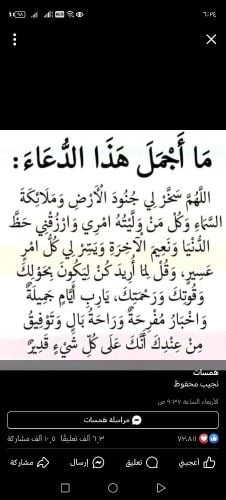 ٦:٢٤
مَا أَجْمَلَ هَذَا الدُّعَاءَ:
اللَّهُمَّ سَخَّرْ لِي جُنُودَ الْأَرْضِ وَمَلَائِكَةَ
السَّمَاءِ وَكُلَّ مَنْ وَلَّيْتَهُ امْرِي وَارْزُقْنِي حَظَّ
الدُّنْيَا وَنَعِيمَ الْآخِرَةِ وَيَسِّرْ لِي كُلَّ امْرٍ
عَسِيرٍ، وَقُلْ لِمَا أُرِيدَ كُنْ لِيَكُونَ بِحَوْلِكَ
وَقُوَّتِكَ وَرَحْمَتِكَ، يَارِبِ أَيَّامٍ جَمِيلَةً
وَاخْبَارُ مُفْرِحَةٌ وَرَاحَةُ بَالٍ وَتَوْفِيقُ
مِنْ عِنْدِكَ أَنَّكَ عَلَى كُلِّ شَيْءٍ قَدِيرٌ
همسات
نجيب محفوظ
الأربعاء الساعة ٩:٣٧ ص
مراسلة همسات
٧٢٬٨١١
٦٫٣ ألف تعليقًا ١٠٫٥ ألف مشاركة
أعجبني
تعليق
إرسال
مشاركة